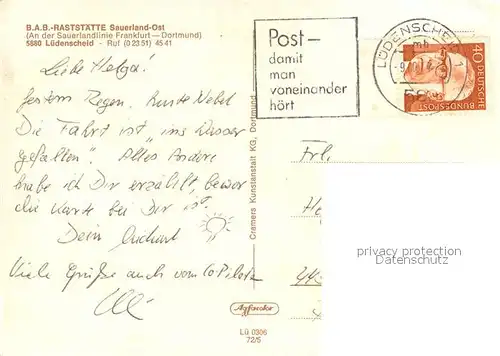 B.A.B.-RASTSTÄTTE Sauerland-Ost
(An der Sauerlandlinie Frankfurt—Dortmund)
5880 Lüdenscheid - Ruf (0 23 51) 45 41
Liebe Helga!
Gestern Regen, heute Nebel
Die Fahrt ist "ins Wasser
gefallen". Alles Andere
habe ich Dir erzählt, bevor
die Karte bei Dir ist.
Dein
Viele Grüße auch vom CoPiloten
Post —
damit
man
voneinander
hört
LÜDENSCHEID 1
40
DEUTSCHE
BUNDESPOST
Cramers Kunstanstalt KG, Dortmund
Frl.
privacy protection
Datenschutz
Agfacolor
Lü 0306
72/5